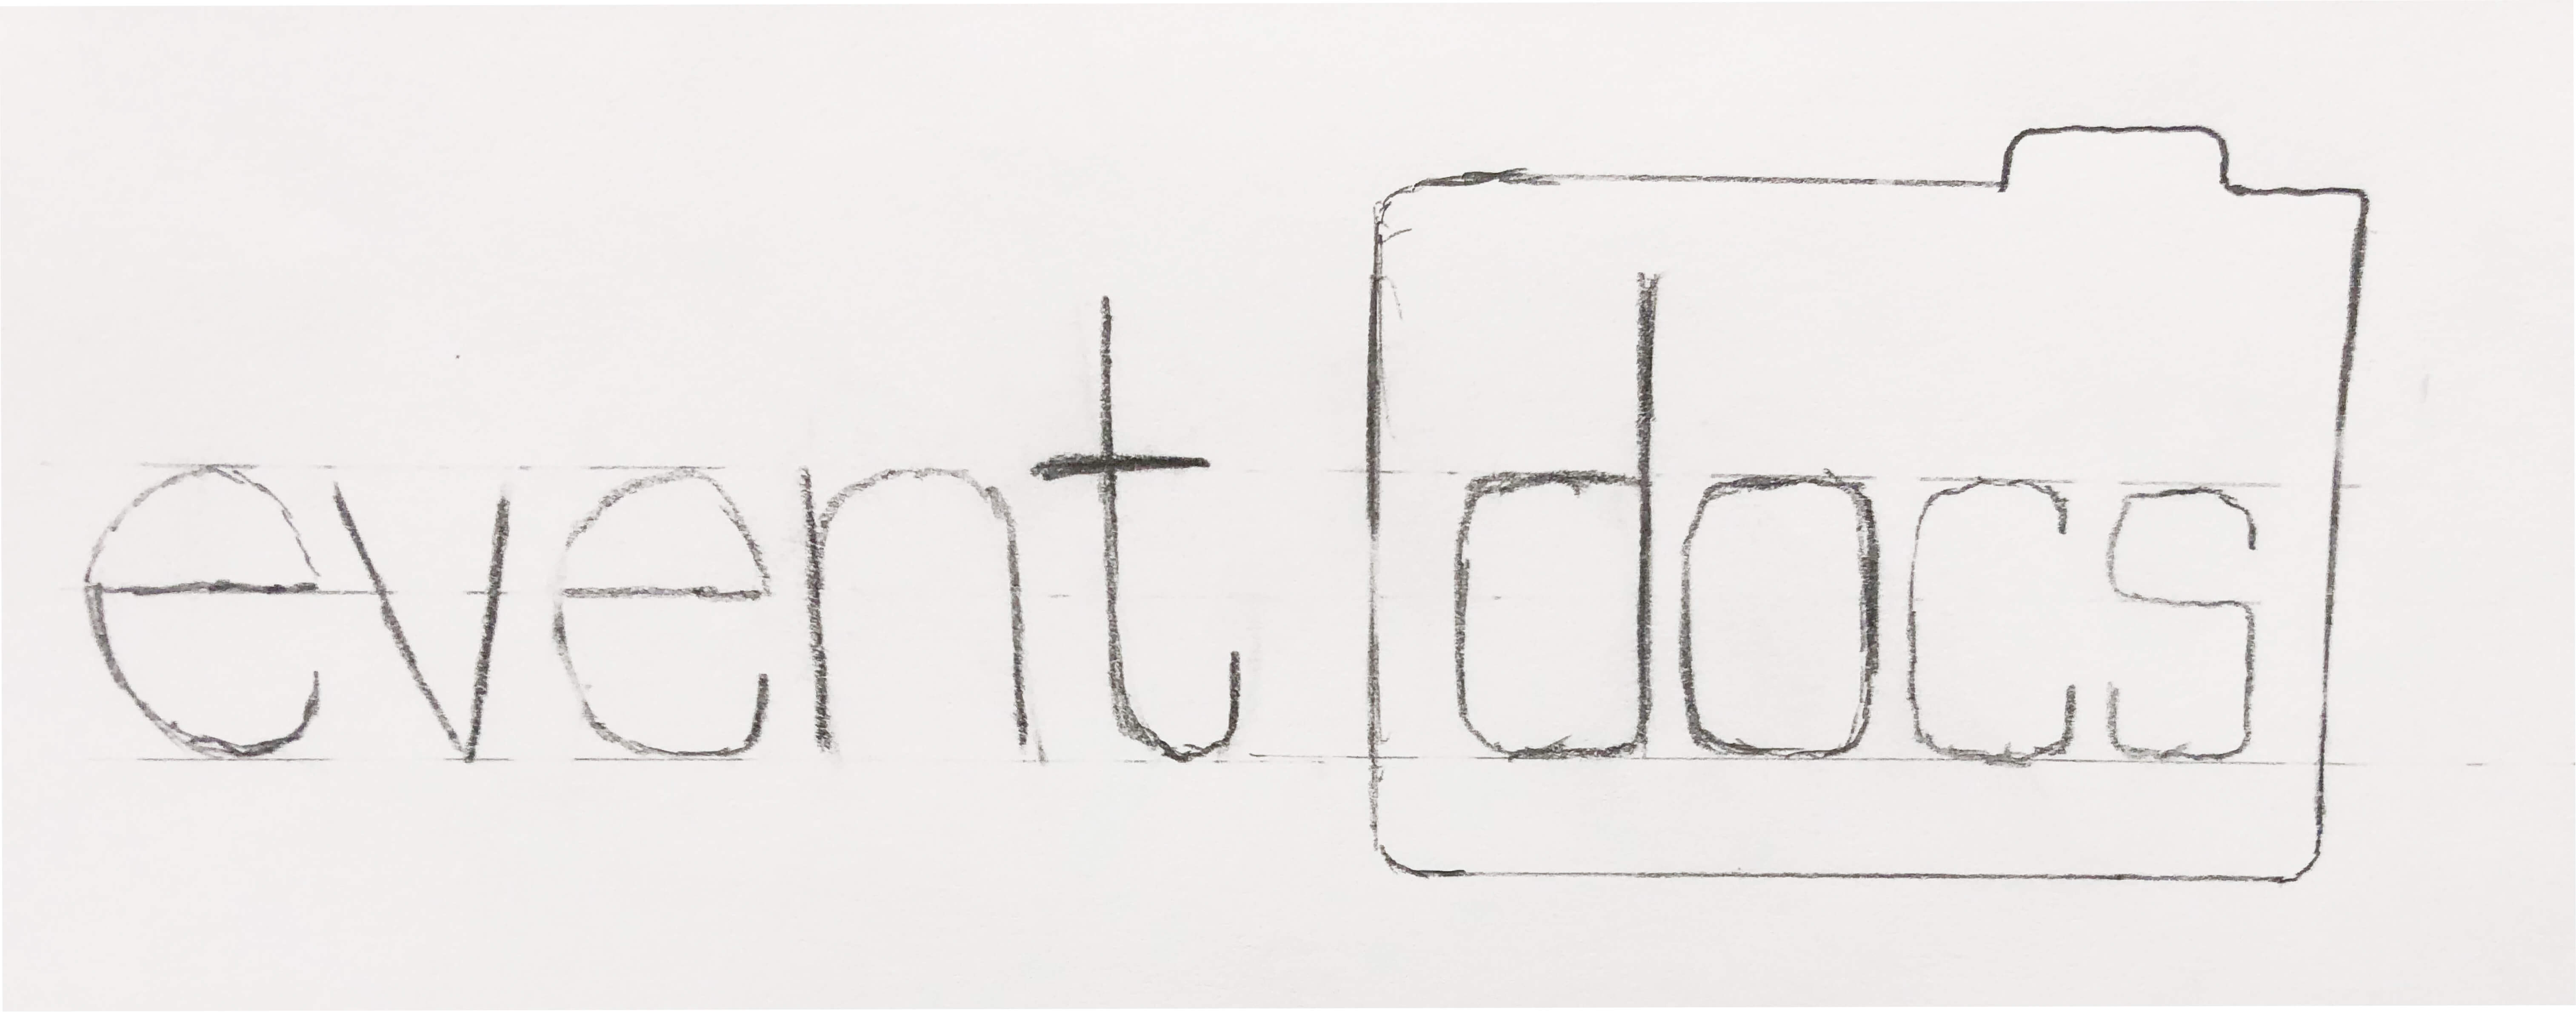 event docs